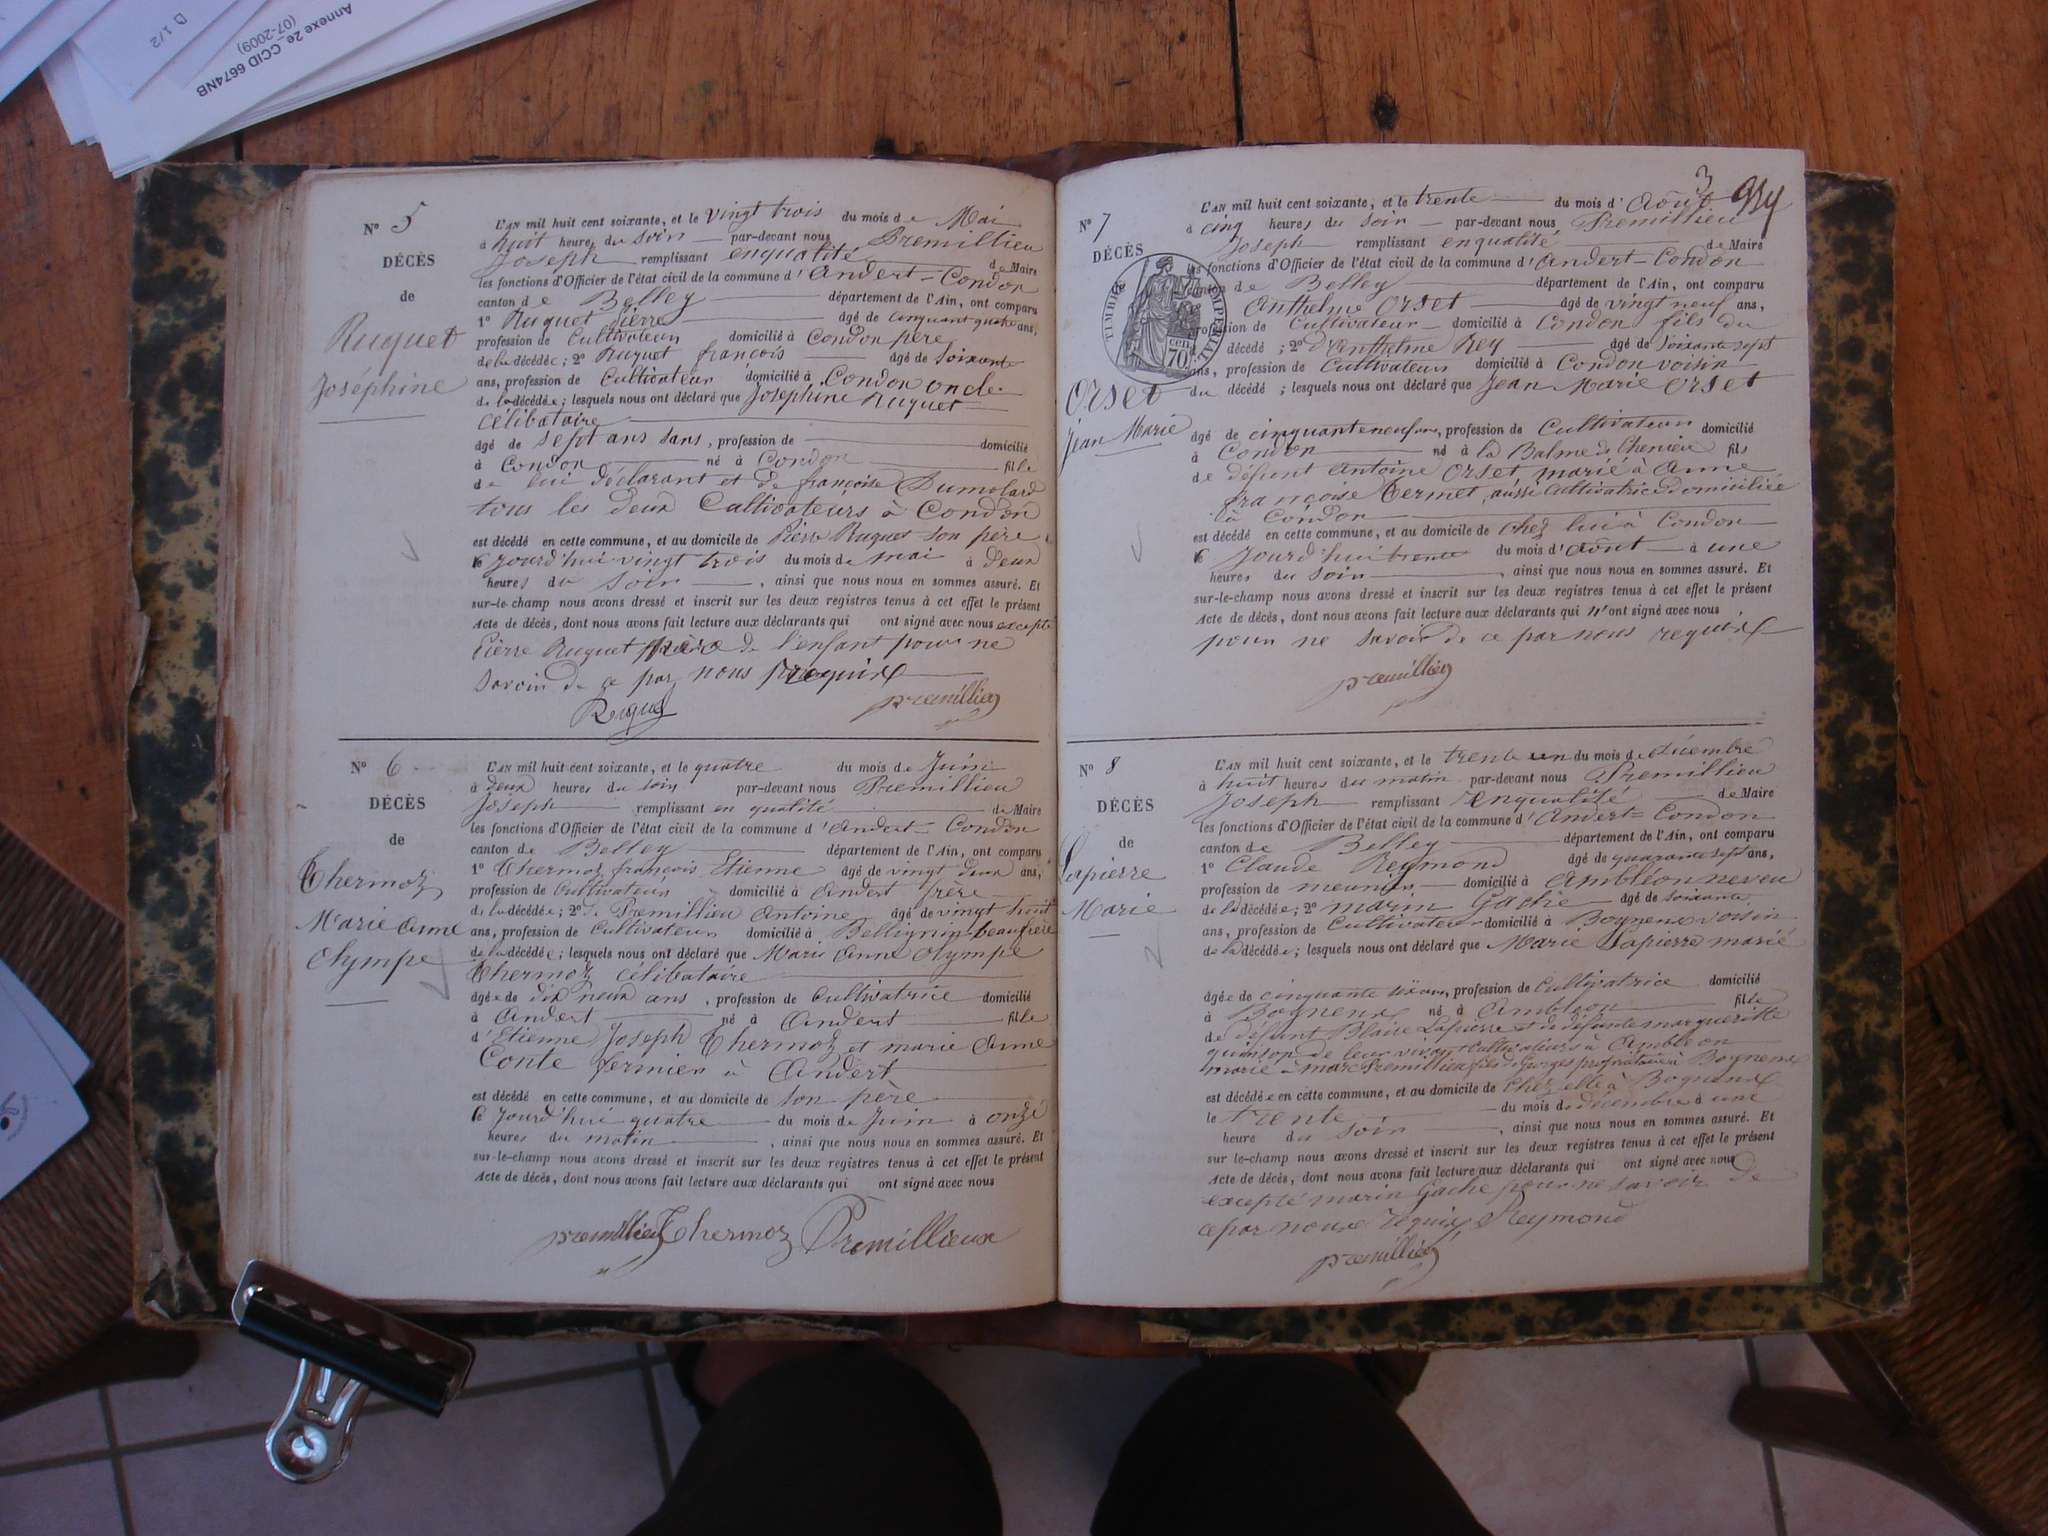 Annexe 2e_CCID 6674NB
(07-2009)
D 1/2
N° 5
DÉCÈS
de
Ruquet
Joséphine
L'AN mil huit cent soixante, et le vingt trois du mois de Mai
à huit heures du soir par-devant nous Premillieu
Joseph remplissant en qualité de Maire
les fonctions d'Officier de l'état civil de la commune d'Andert-Condon
canton de Belley département de l'Ain, ont comparu
1° Ruquet Pierre âgé de cinquant quatre ans,
profession de Cultivateur domicilié à Condon père
de la décédée; 2° Ruquet françois âgé de soixante
ans, profession de Cultivateur domicilié à Condon oncle
de la décédée; lesquels nous ont déclaré que Joséphine Ruquet
célibataire
âgé de sept ans sans, profession de domicilié
à Condon né à Condon fille
de lui déclarant et de françoise Dumolard
tous les deux Cultivateurs à Condon
est décédé en cette commune, et au domicile de Pierre Ruquet son père
le jourd'hui vingt trois du mois de mai à deux
heures du soir, ainsi que nous nous en sommes assuré. Et
sur-le-champ nous avons dressé et inscrit sur les deux registres tenus à cet effet le présent
Acte de décès, dont nous avons fait lecture aux déclarants qui ont signé avec nous excepté
Pierre Ruquet père de l'enfant pour ne
savoir de ce par nous requis
Ruquet premillieu
N° 6
DÉCÈS
de
Thermoz
Marie anne
Olympe
L'AN mil huit cent soixante, et le quatre du mois de Juin
à deux heures du soir par-devant nous Premillieu
Joseph remplissant en qualité de Maire
les fonctions d'Officier de l'état civil de la commune d'Andert-Condon
canton de Belley département de l'Ain, ont comparu
1° Thermoz françois Etienne âgé de vingt deux ans,
profession de Cultivateur domicilié à Andert frère
de la décédée; 2° Premillieu Antoine âgé de vingt huit
ans, profession de Cultivateur domicilié à Bellignin beaufrère
de la décédée; lesquels nous ont déclaré que Marie Anne Olympe
Thermoz célibataire
âgée de dix neuf ans, profession de Cultivatrice domicilié
à Andert né à Andert fille
d'Etienne Joseph Thermoz et marie Anne
Conte fermier à Andert
est décédé en cette commune, et au domicile de son père
le jourd'hui quatre du mois de Juin à onze
heures du matin, ainsi que nous nous en sommes assuré. Et
sur-le-champ nous avons dressé et inscrit sur les deux registres tenus à cet effet le présent
Acte de décès, dont nous avons fait lecture aux déclarants qui ont signé avec nous
premillieu Thermoz Premillieux
3
N° 7
DÉCÈS
TIMBRE IMPÉRIAL
70 cen.
Orset
Jean Marie
L'AN mil huit cent soixante, et le trente du mois d'Août
à cinq heures du soir par-devant nous Premillieu
Joseph remplissant en qualité de Maire
les fonctions d'Officier de l'état civil de la commune d'Andert-Condon
canton de Belley département de l'Ain, ont comparu
Anthelme Orset âgé de vingt neuf ans,
profession de Cultivateur domicilié à Condon fils du
décédé; 2° d'Anthelme Rey âgé de soixante sept
ans, profession de Cultivateur domicilié à Condon voisin
du décédé; lesquels nous ont déclaré que Jean Marie Orset
âgé de cinquante neuf ans, profession de Cultivateur domicilié
à Condon né à la Balme fils
de défunt Antoine Orset marié à Anne
françoise Termet, aussi Cultivatrice domiciliée
à Condon
est décédé en cette commune, et au domicile de chez lui à Condon
le jourd'hui trente du mois d'Août à une
heures du soir, ainsi que nous nous en sommes assuré. Et
sur-le-champ nous avons dressé et inscrit sur les deux registres tenus à cet effet le présent
Acte de décès, dont nous avons fait lecture aux déclarants qui n'ont signé avec nous
pour ne savoir de ce par nous requis
premillieu
N° 8
DÉCÈS
de
Lapierre
Marie
L'AN mil huit cent soixante, et le trente un du mois de décembre
à huit heures du matin par-devant nous Premillieu
Joseph remplissant en qualité de Maire
les fonctions d'Officier de l'état civil de la commune d'Andert-Condon
canton de Belley département de l'Ain, ont comparu
1° Claude Reymond âgé de quarante sept ans,
profession de meunier domicilié à Ambléon neveu
de la décédée; 2° marin Gache âgé de soixante
ans, profession de Cultivateur domicilié à Bognens voisin
de la décédée; lesquels nous ont déclaré que Marie Lapierre marié
âgée de cinquante six ans, profession de Cultivatrice domicilié
à Bognens né à Ambléon fille
de défunt Blaise Lapierre et de défunte margueritte
de leur vivant cultivateurs à Ambléon
marié à marc Premillieu fils de Georges propriétaire à Bognens
est décédée en cette commune, et au domicile de chez elle à Bognens
le trente du mois de décembre à une
heure du soir, ainsi que nous nous en sommes assuré. Et
sur-le-champ nous avons dressé et inscrit sur les deux registres tenus à cet effet le présent
Acte de décès, dont nous avons fait lecture aux déclarants qui ont signé avec nous
excepté marin Gache pour ne savoir de
ce par nous requis Reymond
premillieu